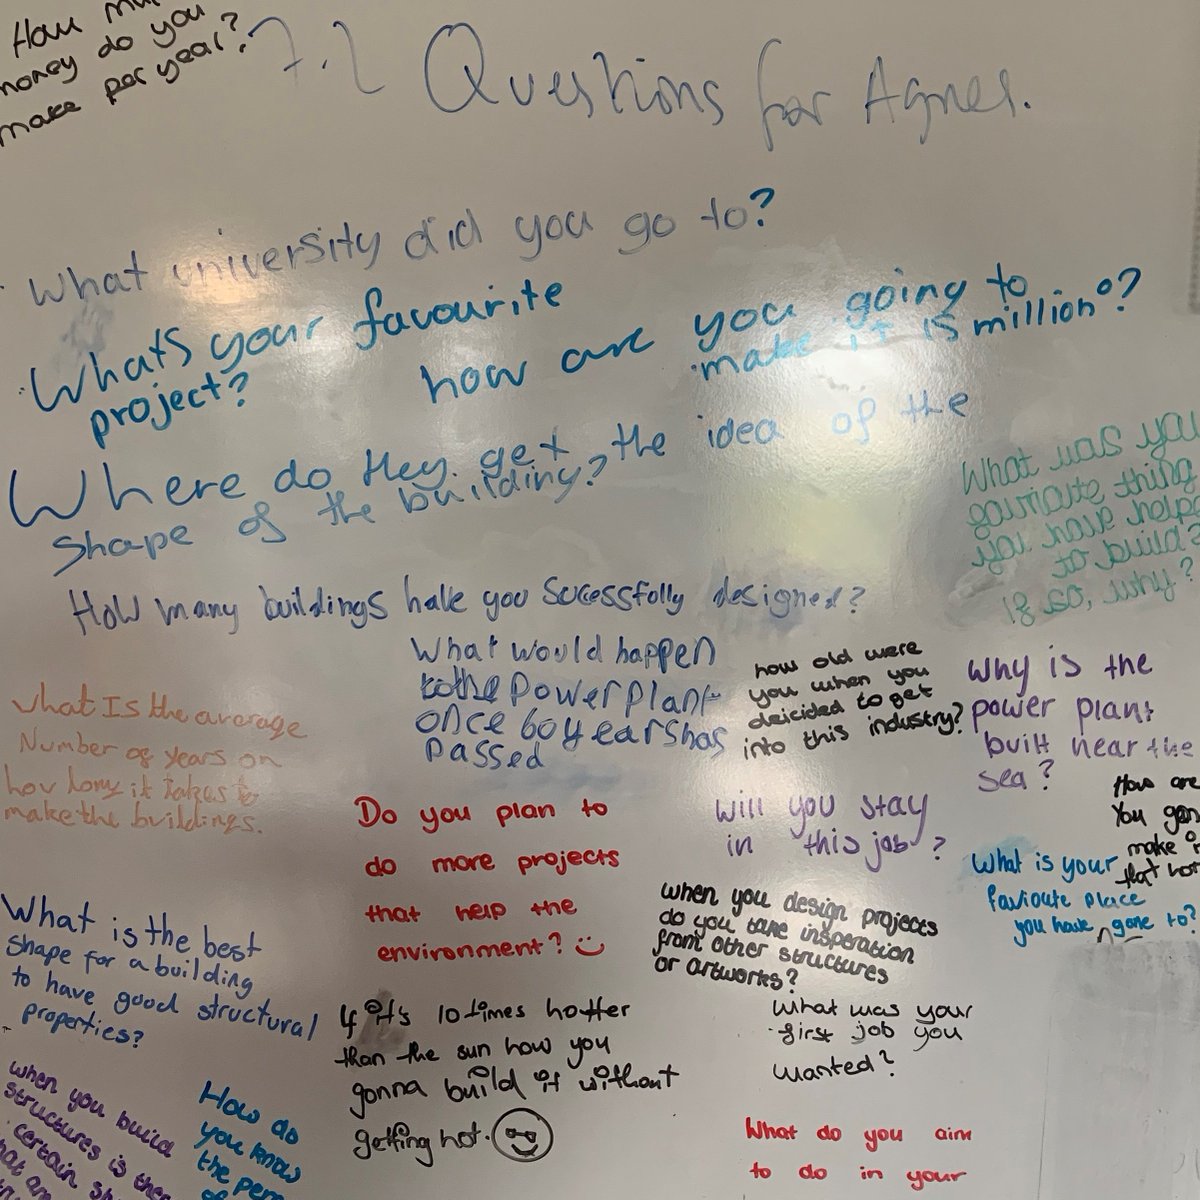 How
money do you
make per year?
7.2 Questions for Agnes.
What university did you go to?
What's your favourite
project?
how are you going to
make it 15 million°?
Where do they get the idea of the
shape of the building?
What was you
favrioute thing
you have helped
to build?
If so, why?
How many buildings have you sucessfully designed?
What would happen
to the power plant
once 60 years has
passed
how old were
you when you
deicided to get
into this industry?
why is the
power plant
built near the
sea?
what Is the avarage
Number of years on
how long it takes to
make the buildings.
Do you plan to
do more projects
that help the
environment?
will you stay
in this job?
How are
You gon
make
that hot
What is your
favioute place
you have gone to?
when you design projects
do you take insperation
from other structures
or artworks?
What is the best
shape for a building
to have good structural
properties?
if it's 10 times hotter
than the sun how you
gonna build it without
getting hot.
What was your
first job you
wanted?
when you build
structures is ther
certain
How do
you know
the
What do you aim
to do in your